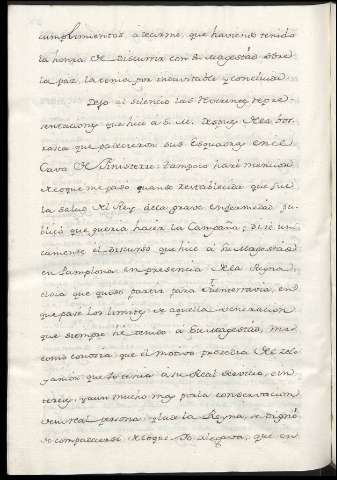 cumplimientos, a decirme, que haviendo tenido
la honrra de discurrir con S. Magestad sobre
la paz, la tenia por inevitable, y concluida.
Dejo al silencio las
sentaciones que hice a S. M. despues de la bor-
rasca que padecieron sus Esquadras en el
Cavo de Finisterre: tampoco haré mencion
de lo que me paso quando restablecida que fue
la salud del Rey, de la grave enfermedad pu-
blicó que queria hacer la Campaña; diré uni-
camente el discurso que hice á su Magestad
en Pamplona en presencia de la Reyna,
el dia que quiso partir para Fuenterravia, en
que pasé los limites de aquella veneracion
que siempre hé tenido á Su Magestad, mas
como conocia que el motivo procedia del zelo
y amor que Yo tenia á su Real servicio, e in-
teres, y aun mucho mas por la conservacion
de su real persona, y la de la Reyna, se dignó
de compadecerse de lo que Yo alegava, que en